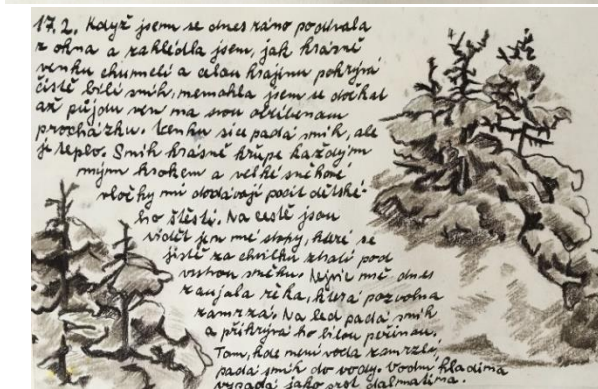 17.2. Když jsem se dnes ráno podívala
z okna a zahlédla jsem, jak krásně
venku chumelí a celou krajinu pokrývá
čistě bílí sníh, nemohla jsem se dočkat
až půjdu ven na svou oblíbenou
procházku. Venku sice padá sníh, ale
je teplo. Sníh krásně křupe každým
mým krokem a velké sněhové
vločky mi dodávají pocit dětské-
ho štěstí. Na cestě jsou
vidět jen mé stopy, které se
jistě za chvilku ztratí pod
vrstvou sněhu. Nejvíc mě dnes
zaujala řeka, která pozvolna
zamrzá. Na led padá sníh
a přikrývá ho bílou peřinou.
Tam, kde není voda zamrzlá,
padá sníh do vody. Vodní hladina
vypadá jako srst dalmatina.